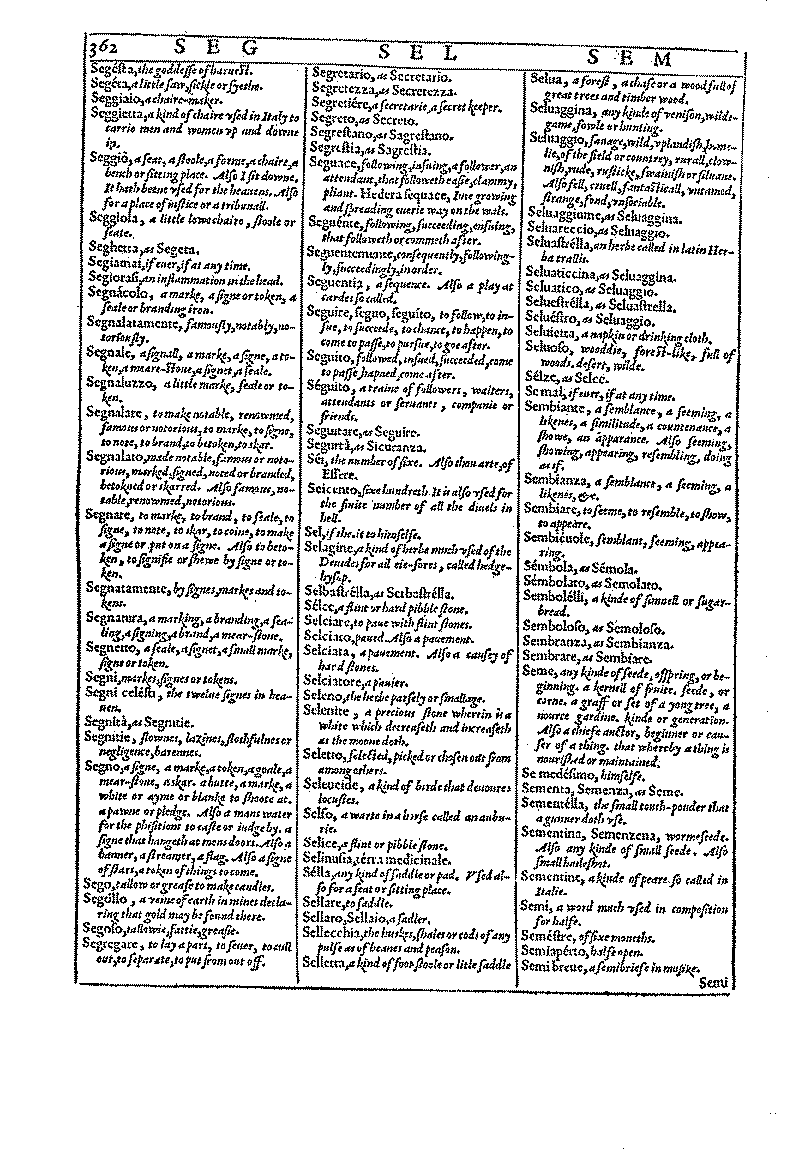 362 SEG SEL SEM
Segésta, the goddesse of haruest.
Segéta, a little saw, sickle or sythe.
Seggiaio, a chaire-maker.
Seggietta, a kind of chaire vsed in Italy to
carrie men and women vp and downe
in.
Seggio, a seat, a stoole, a forme, a chaire, a
bench or sitting place. Also I sit downe.
It hath beene vsed for the heauens. Also
for a place of iustice or a tribunall.
Seggiola, a little lowe chaire, stoole or
seate.
Seghetta, as Segeta.
Segiamai, if euer, if at any time.
Segiorasi, an inflammation in the head.
Segnácolo, a marke, a signe or token, a
seale or branding iron.
Segnalatamente, famously, notably, no-
toriously.
Segnale, a signall, a marke, a signe, a to-
ken, a meare-stone, a signet, a seale.
Segnaluzzo, a little marke, seale or to-
ken.
Segnalare, to make notable, renowned,
famous or notorious, to marke, to signe,
to note, to brand, to betoken, to skar.
Segnalato, made notable, famous or noto-
rious, marked, signed, noted or branded,
betokned or skarred. Also famous, no-
table, renowmed, notorious.
Segnare, to marke, to brand, to seale, to
signe, to note, to skar, to coine, to make
a signe or put on a signe. Also to beto-
ken, to signifie or shewe by signe or to-
ken.
Segnatamente, by signes, markes and to-
kens.
Segnatura, a marking, a branding, a sea-
ling, a signing, a brand, a mear-stone.
Segnetto, a seale, a signet, a small marke,
signe or token.
Segni, markes, signes or tokens.
Segni celésti, the twelue signes in hea-
uen.
Segnità, as Segnitie.
Segnitie, slownes, lazines, slothfulnes or
negligence, barennes.
Segno, a signe, a marke, a token, a goale, a
mear-stone, a skar. a butte, a marke, a
white or ayme or blanke to shoote at.
a pawne or pledge. Also a mans water
for the phisitions to caste or iudge by. a
signe that hangeth at mens doors. Also a
banner, a streamer, a flag. Also a signe
of stars, a token of things to come.
Sego, tallow or grease to make candles.
Segollo, a veine of earth in mines decla-
ring that gold may be found there.
Segoso, tallowie, fattie, greasie.
Segregare, to lay a part, to seuer, to cull
out, to separate, to put from out off.
Segretario, as Secretario.
Segretezza, as Secretezza.
Segretiére, a secretarie, a secret keeper.
Segreto, as Secreto.
Segrestano, as Sagrestano.
Segrestia, as Sagrestia.
Seguace, following, insuing, a follower, an
attendant, that followeth easie, clammy,
pliant. Hedera sequace, Iuie growing
and spreading euerie way on the wals.
Seguénte, following, succeeding, ensuing,
that followeth or commeth after.
Seguentemente, consequently, following-
ly, succeedingly, in order.
Seguentia, a sequence. Also a play at
cardes so called.
Seguire, seguo, seguito, to follow, to in-
sue, to succeede, to chance, to happen, to
come to passe, to pursue, to goe after.
Seguito, followed, insued, succeeded, come
to passe, hapned, come after.
Séguito, a traine of followers, waiters,
attendants or seruants, companie or
friends.
Seguitare, as Seguire.
Segurtà, as Sicuranza.
Sei, the number of sixe. Also thou arte, of
Essere.
Seicento, sixe hundreth. It is also vsed for
the finite number of all the diuels in
hell.
Sel, if the. it to himselfe.
Selagine, a kind of herbe much vsed of the
Druides for all eie-sores, called hedge-
hysop.
Selbastrélla, as Serbastrélla.
Sélce, a flint or hard pibble stone.
Selciare, to paue with flint stones.
Selciato, paued. Also a pauement.
Selciata, a pauement. Also a causey of
hard stones.
Selciatore, a pauier.
Seleno, the herbe parsely or smallage.
Selenite, a precious stone wherein is a
white which decreaseth and increaseth
as the moone doth.
Seletto, selected, picked or chosen out from
among others.
Seleucide, a kind of birde that deuoures
locustes.
Selfo, a warte in a horse called an anbu-
rie.
Selice, a flint or pibble stone.
Selinusia, térra medicinale.
Sélla, any kind of saddle or pad. Vsed al-
so for a seat or sitting place.
Sellare, to saddle.
Sellaro, Sellaio, a sadler.
Sellecchia, the huskes, shales or cods of any
pulse as of beanes and peason.
Selletta, a kind of foot stoole or litle saddle
Selua, a forest, a chase or a wood full of
great trees and timber wood.
Seluaggina, any kinde of venison, wilde-
game, fowle or hunting.
Seluaggio, sauage, wild, vplandish, home-
lie, of the field or countrey, rurall, clow-
nish, rude, rusticke, swainish or siluane.
Also fell, cruell, fantasticall, vntamed,
strange, fond, vnsociable.
Seluaggiume, as Seluaggina.
Seluareccio, as Seluaggio.
Seluastrélla, an herbe called in latin Her-
ba trallis.
Seluaticcina, as Seluaggina.
Seluatico, as Seluaggio.
Seluestrélla, as Seluastrella.
Seluéstro, as Seluaggio.
Seluietta, a napkin or drinking cloth.
Seluoso, wooddie, forest-like, full of
woods. desert, wilde.
Sélze, as Selce.
Se mai, if euer, if at any time.
Sembiante, a semblance, a seeming, a
likenes, a similitude, a countenance, a
showe, an apparance. Also seeming,
showing, appearing, resembling, doing
as if.
Sembianza, a semblance, a seeming, a
likenes, &c.
Sembiare, to seeme, to resemble, to show,
to appeare.
Sembiéuole, semblant, seeming, appea-
ring.
Sémbola, as Sémola.
Sémbolato, as Semolato.
Sembolélli, a kinde of simnell or sugar-
bread.
Semboloso, as Semoloso.
Sembranza, as Sembianza.
Sembrare, as Sembiare.
Seme, any kinde of seede, ofspring, or be-
ginning. a kernell of fruite. seede, or
corne. a graff or set of a yong tree, a
nource gardine. kinde or generation.
Also a chiefe auctor, beginner or cau-
ser of a thing. that whereby a thing is
nourished or maintained.
Se medésimo, himselfe.
Sementa, Semenza, as Seme.
Sementélla, the small touch-pouder that
a gunner doth vse.
Sementina, Semenzena, wormeseede.
Also any kinde of small seede. Also
small haileshot.
Sementine, a kinde of peare so called in
Italie.
Semi, a word much vsed in composition
for halfe.
Seméstre, of sixe mouths.
Semiapérto, halfe open.
Semi breue, a semibriefe in musike.
Semi